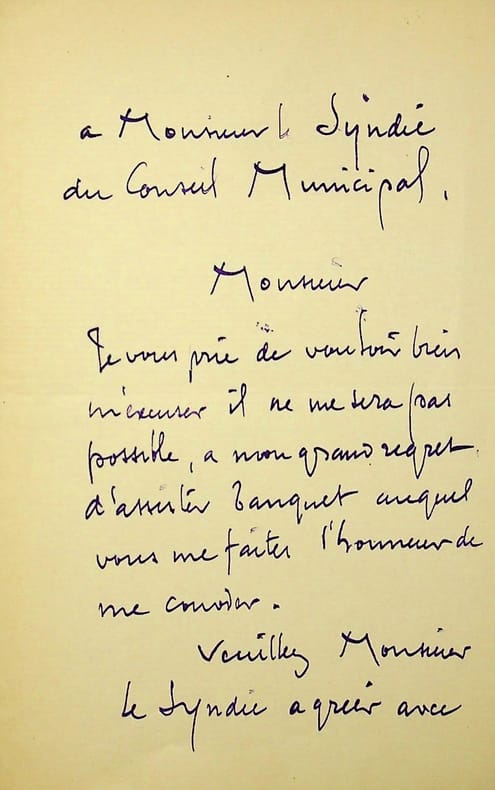 a Monsieur le Syndic
du Conseil Municipal,
Monsieur
Je vous prie de vouloir bien
m'excuser il ne me sera pas
possible, a mon grand regret
d'assister banquet auquel
vous me faites l'honneur de
me convier.
Veuillez Monsieur
le Syndic agréer avec